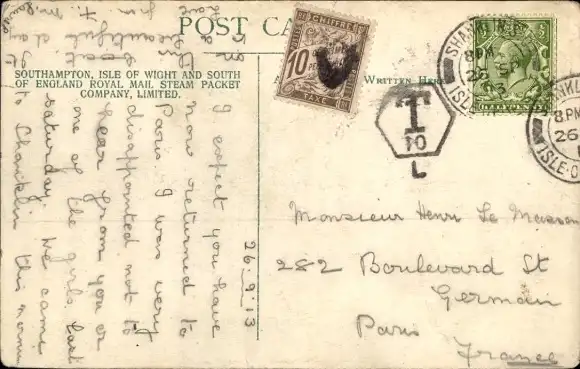 POST CA
SOUTHAMPTON, ISLE OF WIGHT AND SOUTH
OF ENGLAND ROYAL MAIL STEAM PACKET
COMPANY, LIMITED.
WRITTEN HERE
CHIFFRE
10
TAXE
HALFPENNY
SHANKLIN
8 PM
26
13
ISLE
NKLIN
8 PM
26
ISLE·O
T
10
L
26.9.13
I expect you have
now returned to
Paris I was very
disappointed not to
hear from you or
one of the girls last
Saturday. We came
to Shanklin this morning
Monsieur Henri Le Masson
282 Boulevard St
Germain
Paris
France